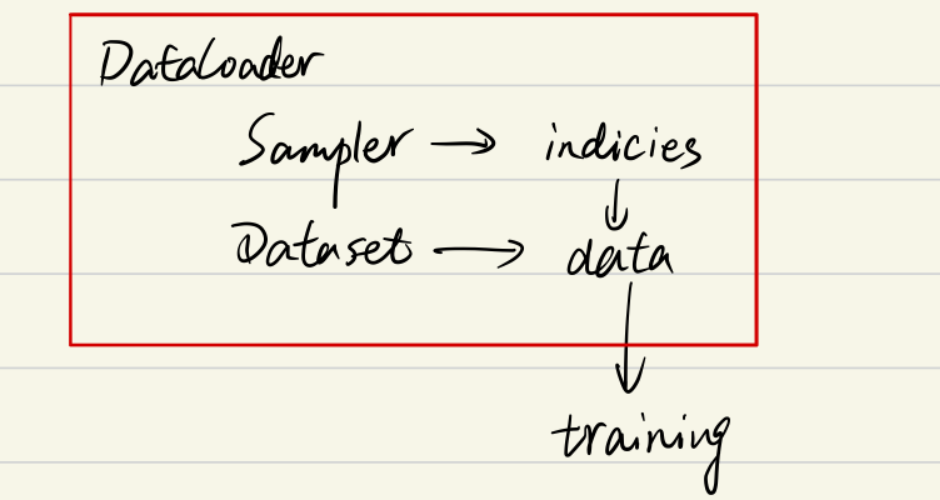 DataLoader
Sampler → indicies
Dataset → data
training